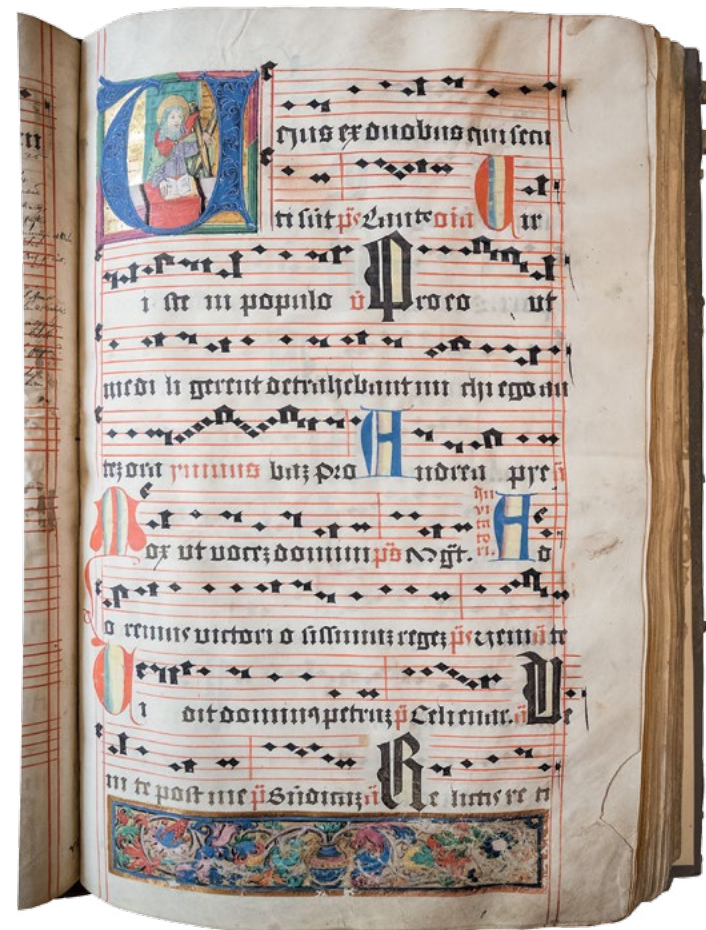 Unus ex duobus qui secu
ti sūt pˢ Laudate oīa Vir
i ste in populo v̄ Pro eo ut
me di li gerent detrahebant mi chi ego au
tez ora ymnus baz pro Andrea pre
Mox ut vocez domini pˢ In vi ta to ri. Ad
o remus victori o sissimuz regez pˢ Venite
Vi dit dominus petruz pˢ Celi enar. a Ve
ni te post me pˢ a Re lictis re ti